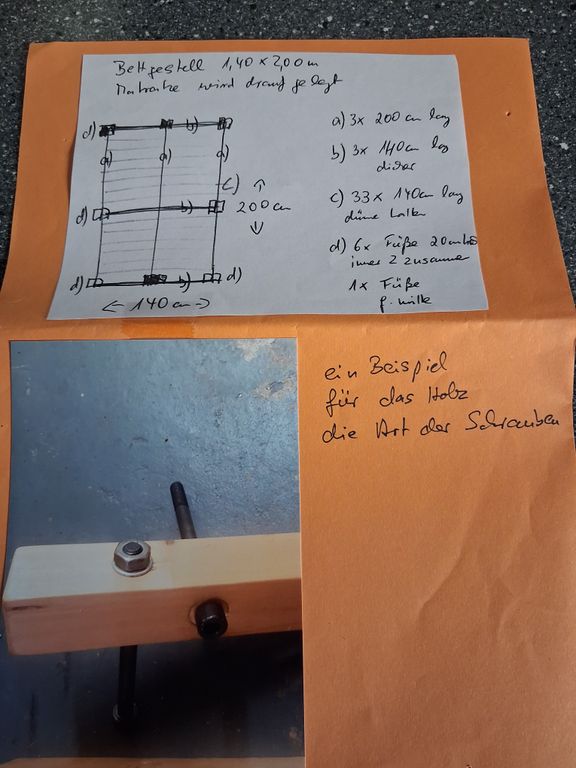 Bettgestell 1,40 x 2,00 m
Matratze wird drauf gelegt
d) b)
a) a) a)
c)
d) b) 200 cm
d) b) d)
140 cm
a) 3x 200 cm lang
b) 3x 140 cm lang
dicker
c) 33 x 140 cm lang
dünne Latten
d) 6x Füße 20 cm
immer 2 zusammen
1x Füße
f. mitte
ein Beispiel
für das Holz
die Art der Schrauben